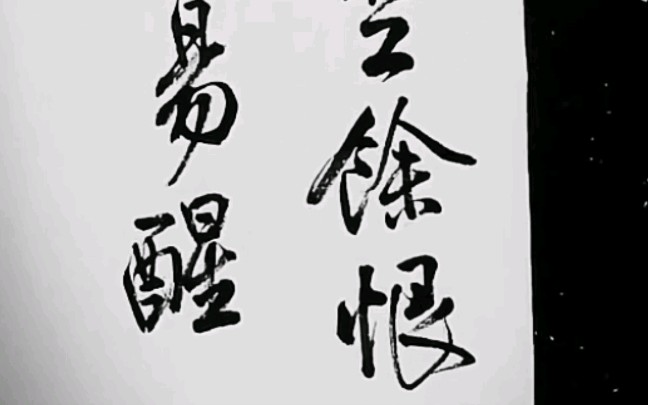 空餘恨
易醒